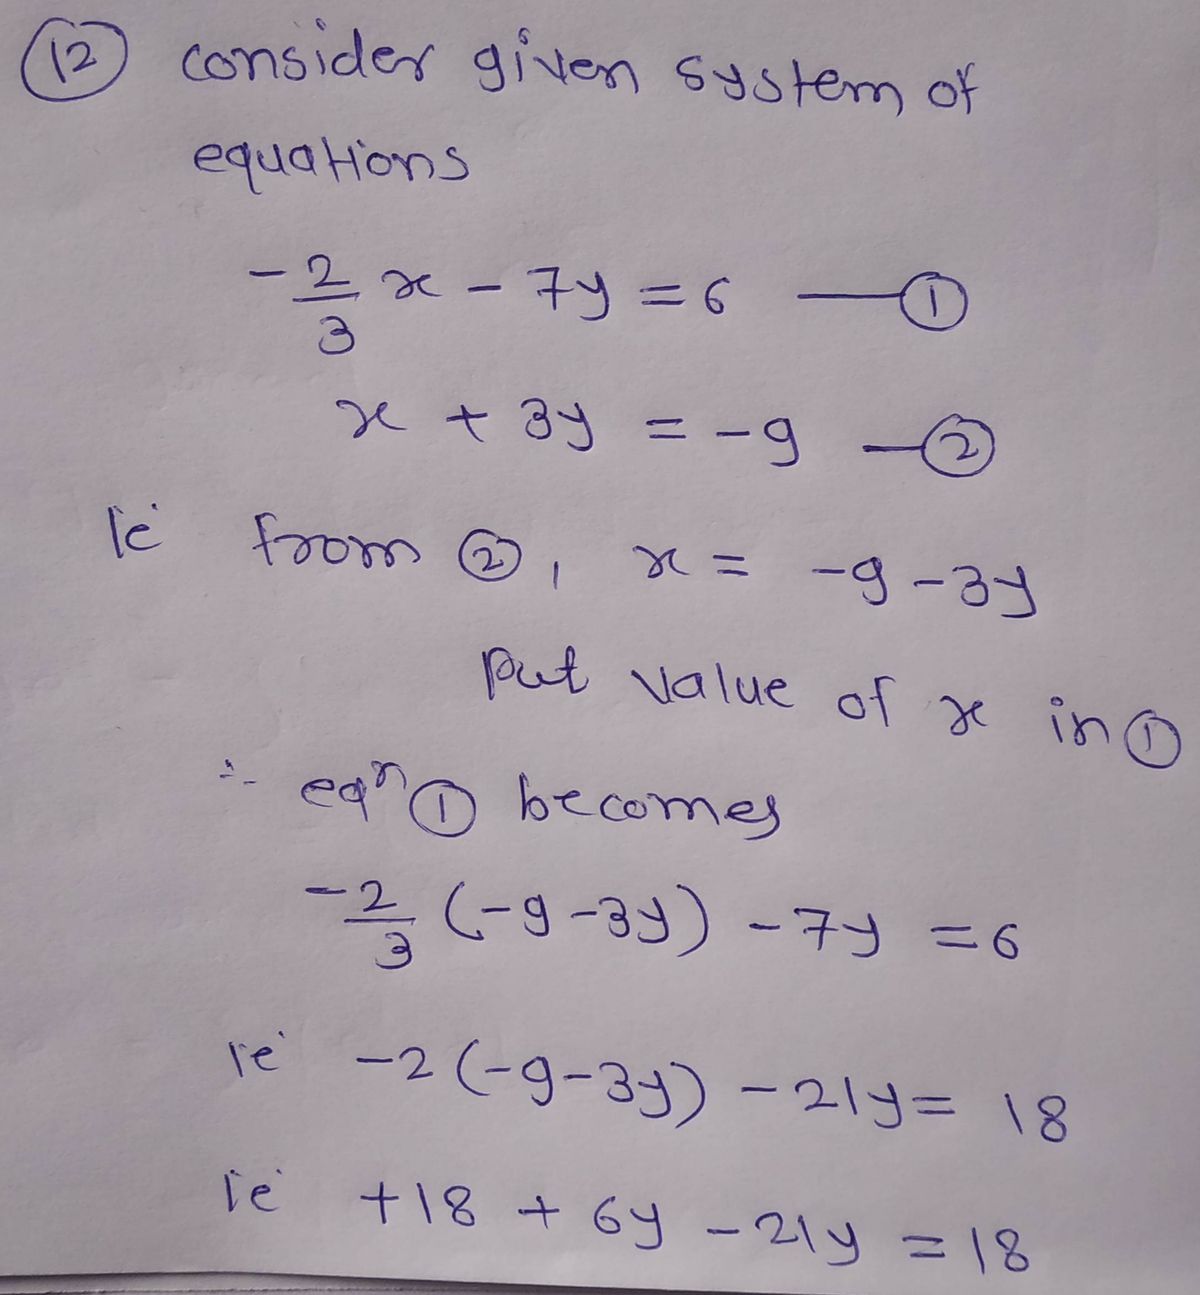 (12) consider given system of
equations
-2/3 x - 7y = 6 —(1)
x + 3y = -9 —(2)
ie from (2), x = -9 - 3y
Put value of x in (1)
∴ eqn (1) becomes
-2/3 (-9 - 3y) - 7y = 6
ie -2(-9-3y) - 21y = 18
ie +18 + 6y - 21y = 18